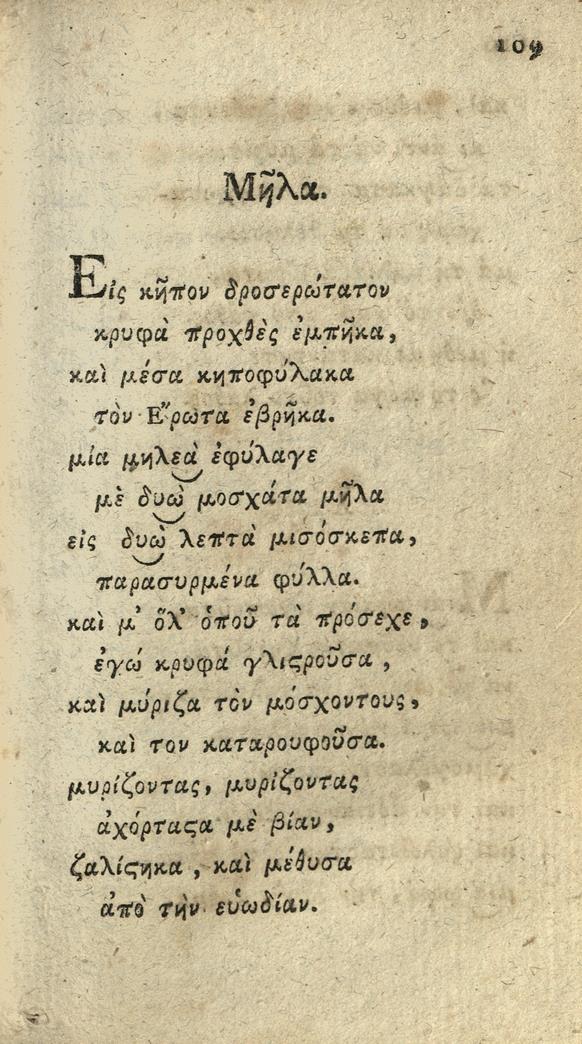 109
Μῆλα.
Εἰς κῆπον δροσερώτατον
κρυφὰ προχθὲς ἐμπῆκα,
καὶ μέσα κηποφύλακα
τὸν Ἔρωτα ἐβρῆκα.
μία μηλεὰ ἐφύλαγε
μὲ δυὼ μοσχάτα μῆλα
εἰς δυὼ λεπτὰ μισόσκεπα,
παρασυρμένα φύλλα.
καὶ μ' ὅλ' ὁποῦ τὰ πρόσεχε,
ἐγώ κρυφά γλιϛροῦσα,
καὶ μύριζα τὸν μόσχοντους,
καὶ τον καταρουφοῦσα.
μυρίζοντας, μυρίζοντας
ἀχόρταϛα μὲ βίαν,
ζαλίϛηκα, καὶ μέθυσα
ἀπὸ τὴν εὐωδίαν.